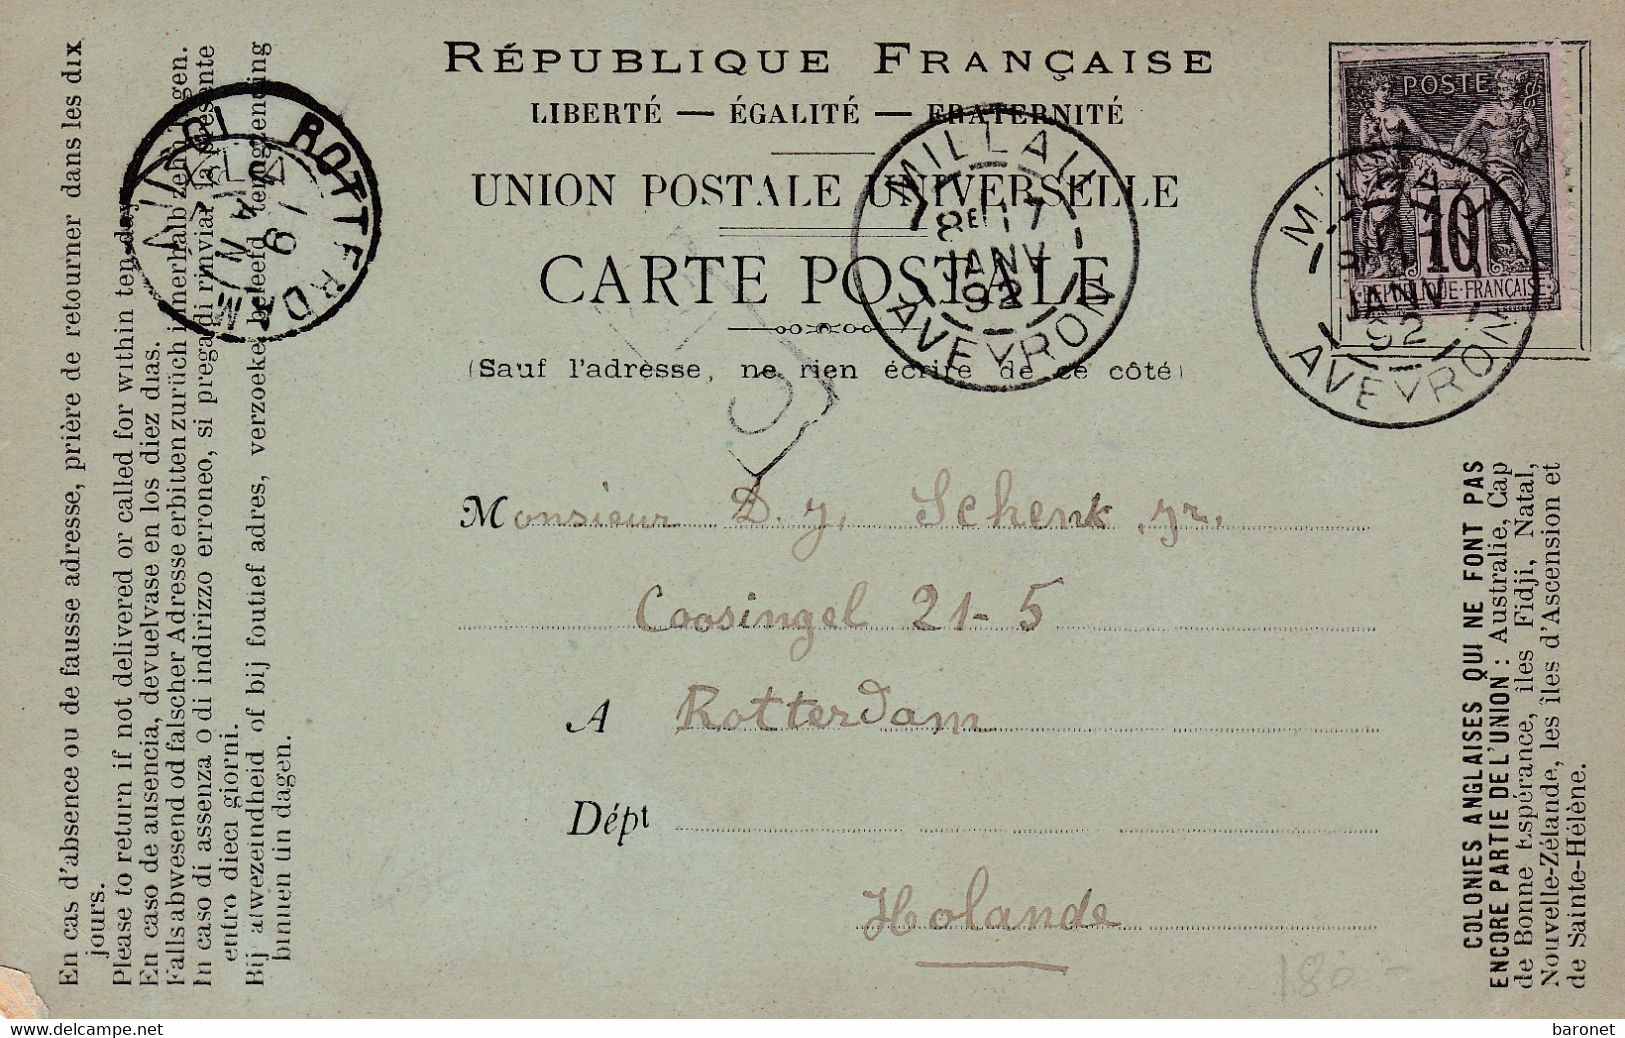 RÉPUBLIQUE FRANÇAISE
LIBERTÉ — ÉGALITÉ — FRATERNITÉ
UNION POSTALE UNIVERSELLE
CARTE POSTALE
(Sauf l'adresse, ne rien écrire de ce côté)
POSTE
10
REPUBLIQUE FRANÇAISE
MILLAU
8E 17
JANV
92
AVEYRON
MILLAU
JANV
92
AVEYRON
ROTTERDAM
Monsieur D. J. Schenk Jr.
Coosingel 21-5
A Rotterdam
Dépt
Holande
180 -
En cas d'absence ou de fausse adresse, prière de retourner dans les dix
jours.
Please to return if not delivered or called for within ten day
En caso de ausencia, devuelvase en los diez dias.
Falls abwesend od falscher Adresse erbitten zurüch innerhalb zehn Tagen.
In caso di assenza o di indirizzo erroneo, si prega di rinviar la presente
entro dieci giorni.
Bij afwezeindheid of bij foutief adres, verzoeke beleefd terugzending
binnen tin dagen.
COLONIES ANGLAISES QUI NE FONT PAS
ENCORE PARTIE DE L'UNION : Australie, Cap
de Bonne Espérance, îles Fidji, Natal,
Nouvelle-Zélande, les îles d'Ascension et
de Sainte-Hélène.
delcampe.net
baronet